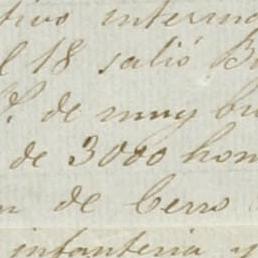 tivo interna
l 18 salió B
P. de muy bu
de 3000 hom
n de Cerro
infanteria y